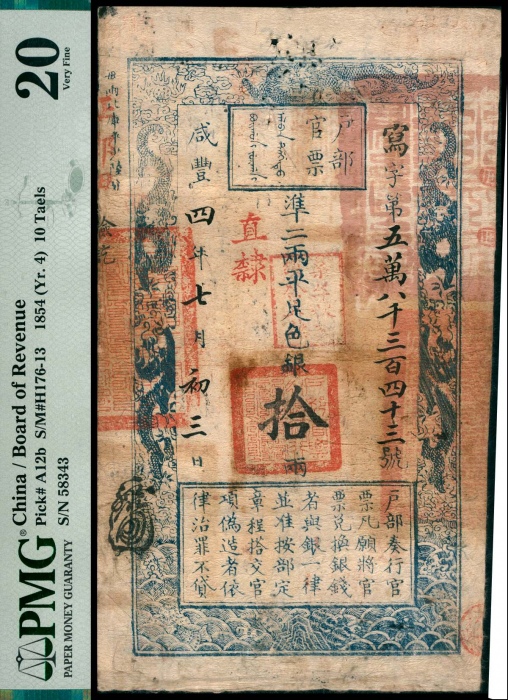 PMG®
PAPER MONEY GUARANTY
China / Board of Revenue
Pick# A12b S/M#H176-13 1854 (Yr. 4) 10 Taels
S/N 58343
20
Very Fine
戶部
官票
寫字第五萬八千三百四十三號
準二兩平足色銀拾兩
直隸
咸豐四年七月初三日
戶部奏行官
票凡願將官
票兌換銀錢
者與銀一律
並准按部定
章程搭交官
項偽造者依
律治罪不貸